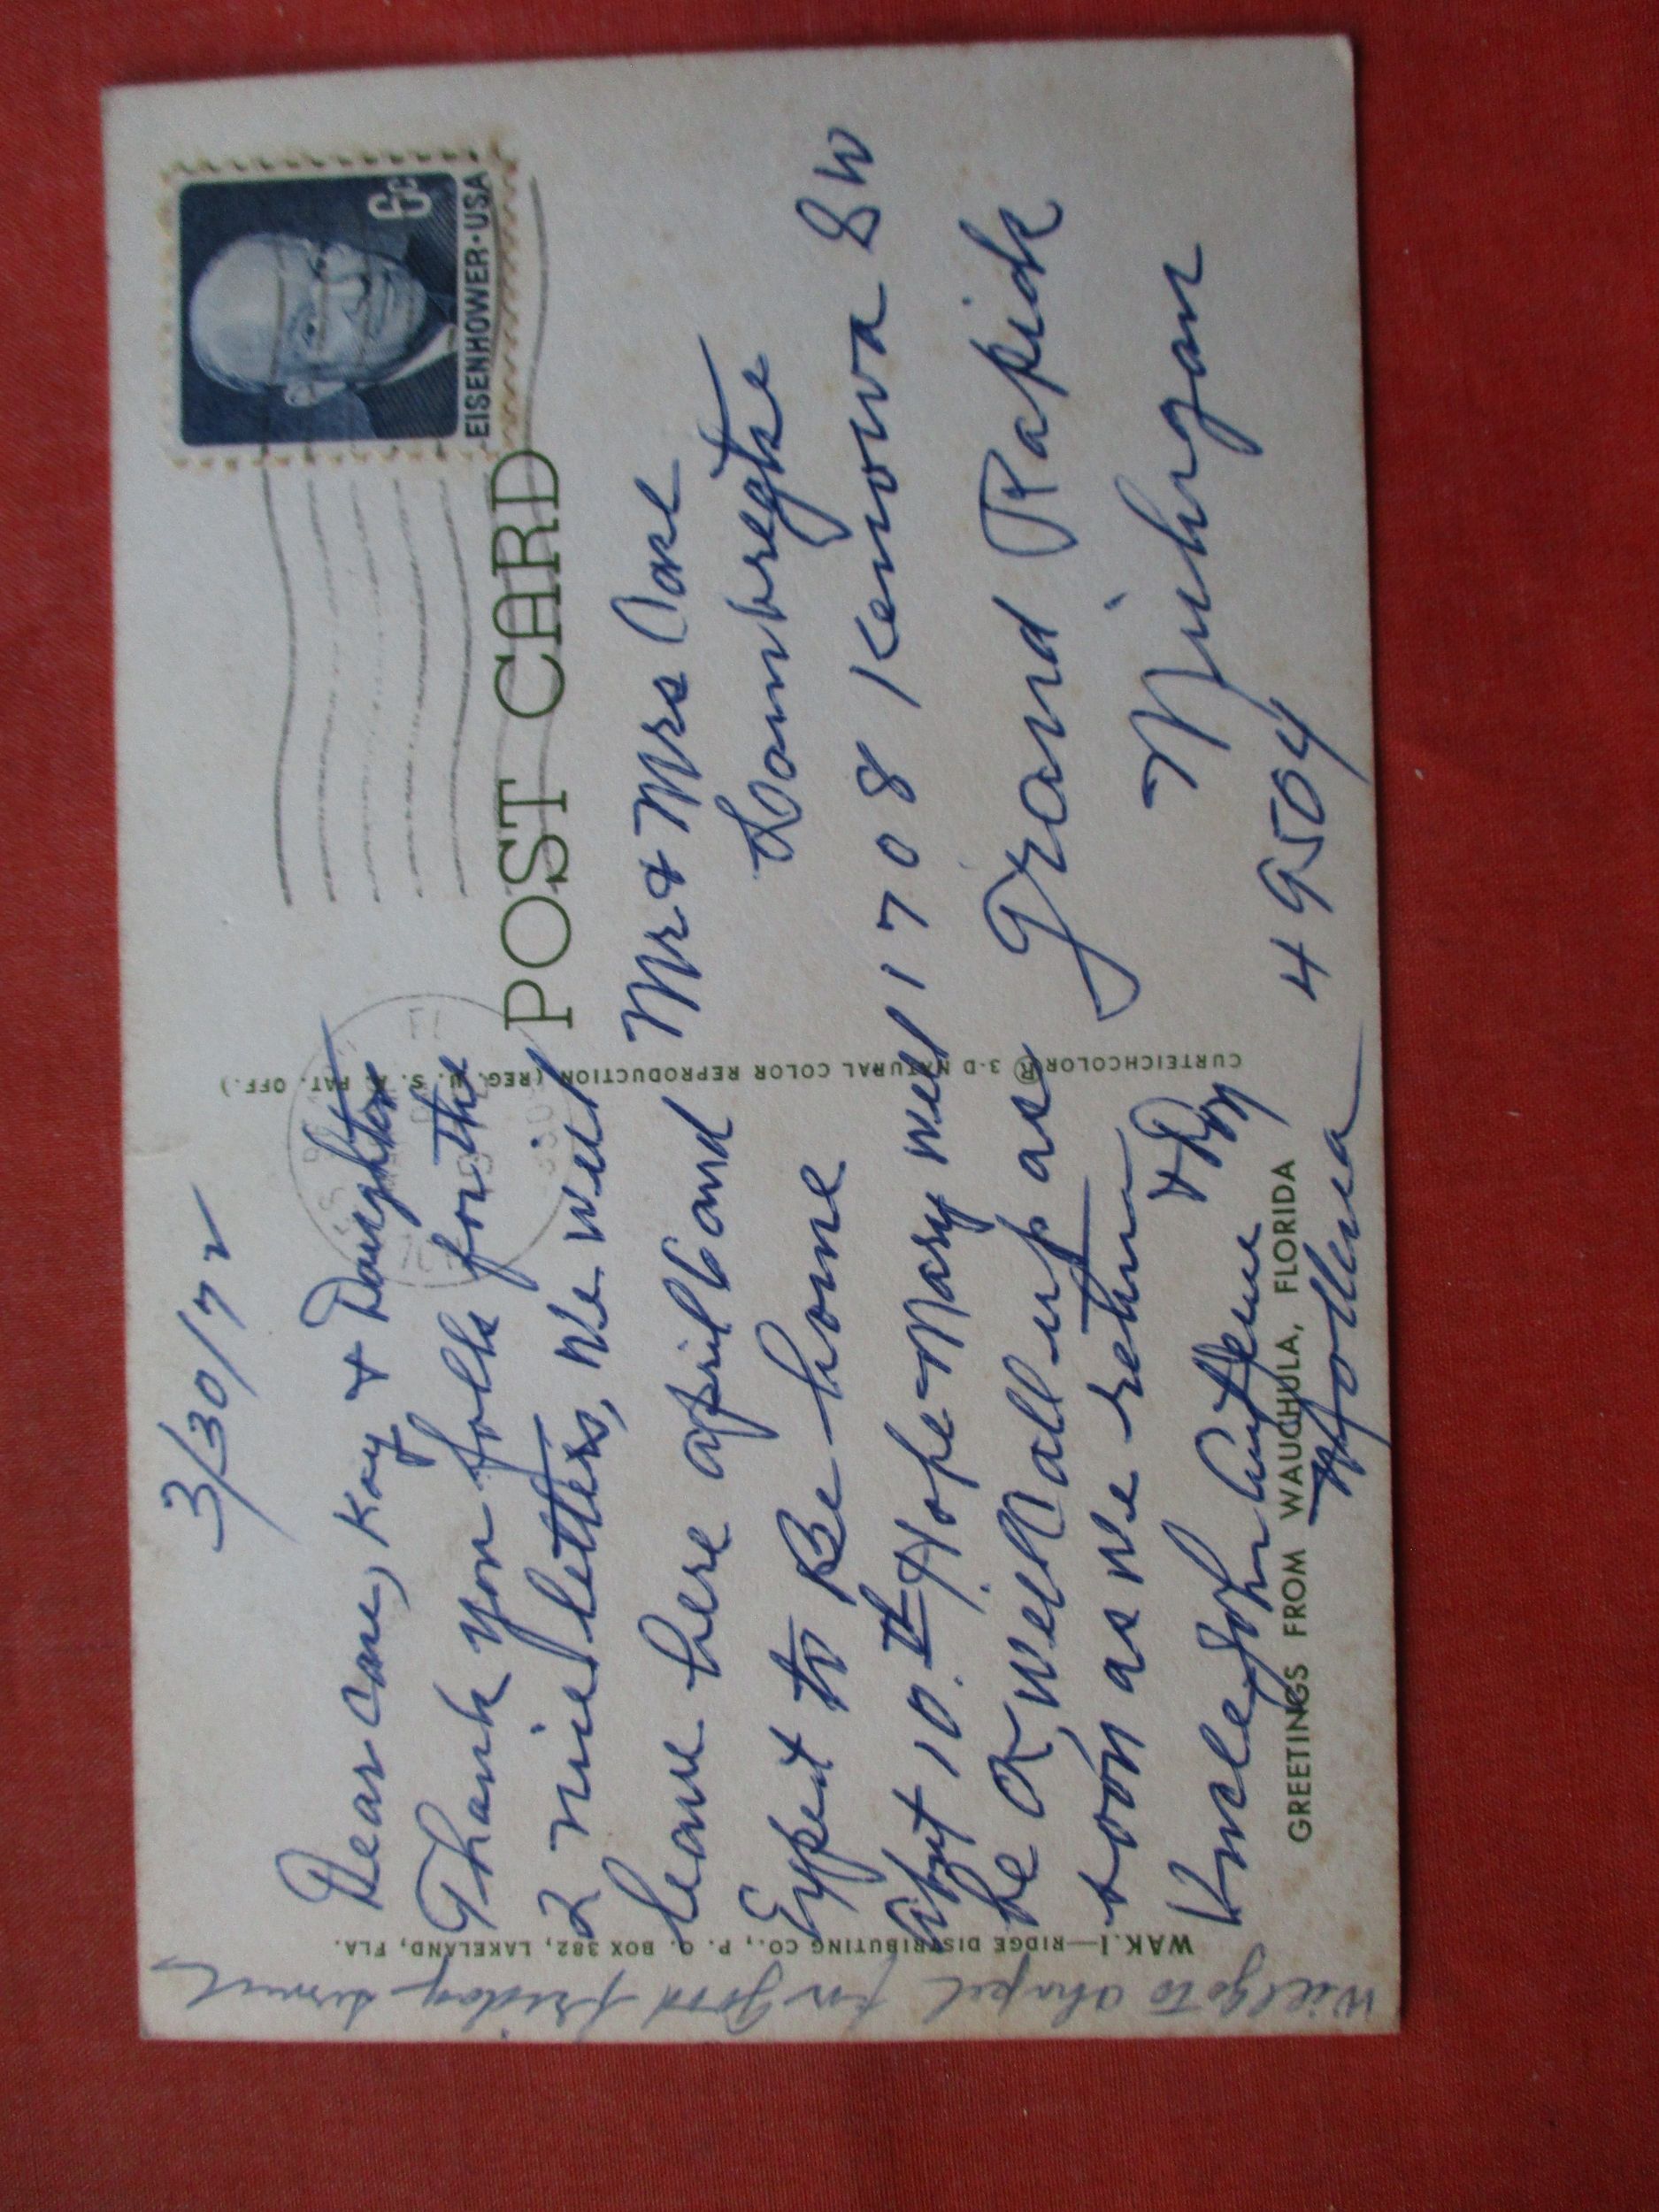 3/30/72
Dear Case, Kay & Daughters
Thank you folks for the
2 nice letters, we will
leave here april 6 and
Expect to Be home
Abut 10.th Hope Mary will
be OK, will Call up as
soon as we return
Uncle John Aunt & Roy
Hollma
GREETINGS FROM WAUCHULA, FLORIDA
Will go to Chapel for good friday service
WAK.1—RIDGE DISTRIBUTING CO., P. O. BOX 382, LAKELAND, FLA.
CURTEICHCOLOR® 3-D NATURAL COLOR REPRODUCTION (REG. U. S. A. PAT. OFF.)
POST CARD
EISENHOWER·USA
6c
Mr & Mrs Case
Lambregtse
1708 Kenowa SW
Grand Rapids
Michigan
49504